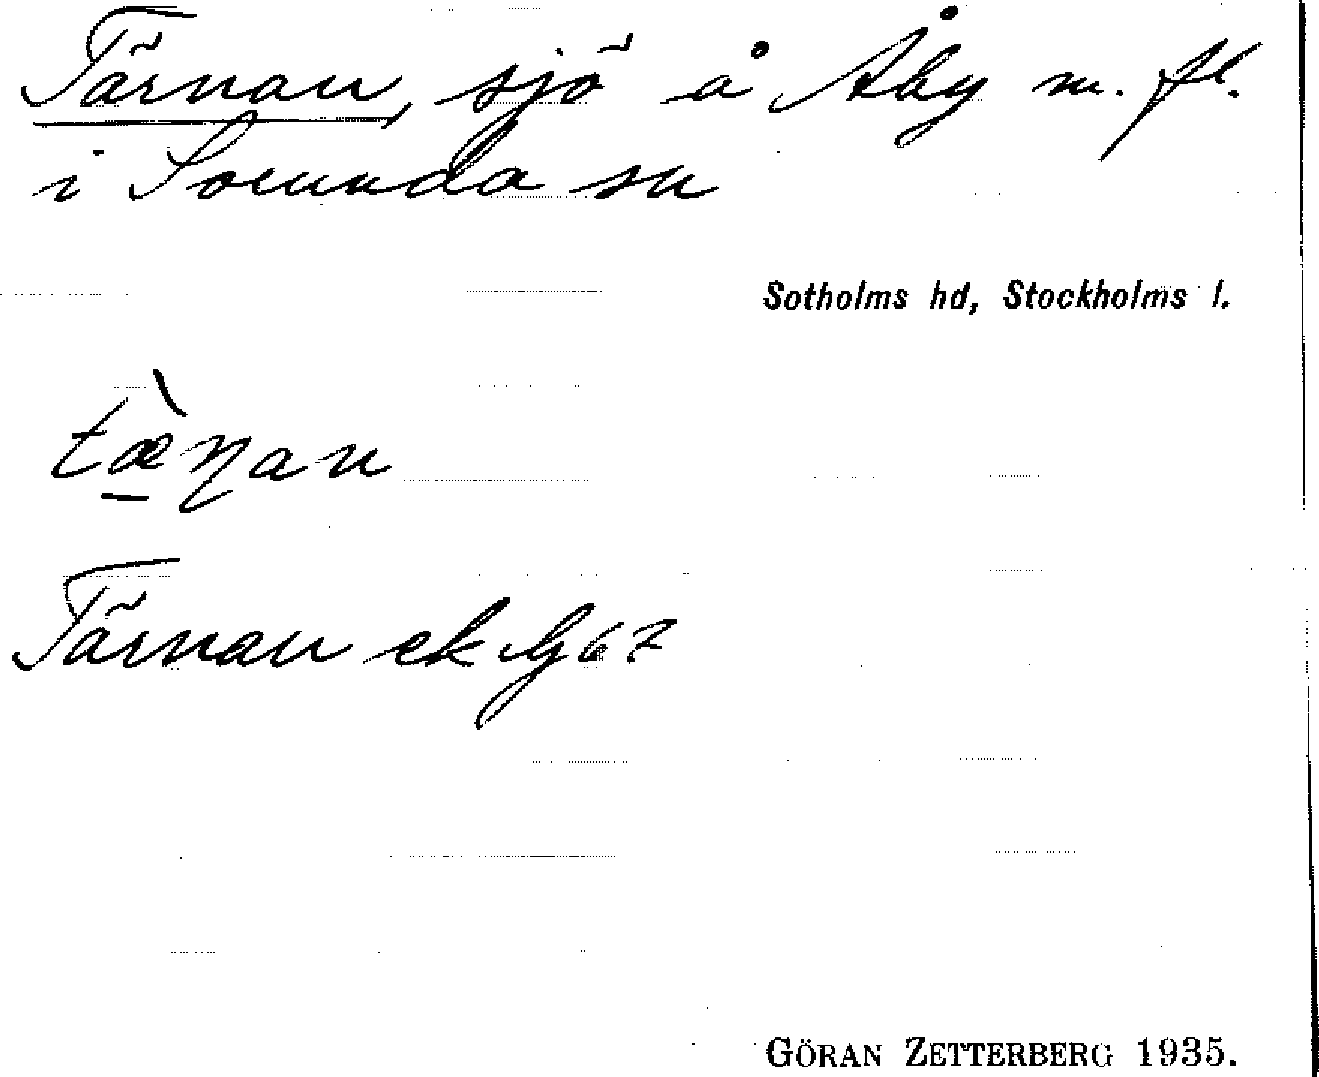 Tärnan, sjö å Åby m. fl.
i Sorunda sn
Sotholms hd, Stockholms l.
tæ̀ṇan
Tärnan ek
GÖRAN ZETTERBERG 1935.